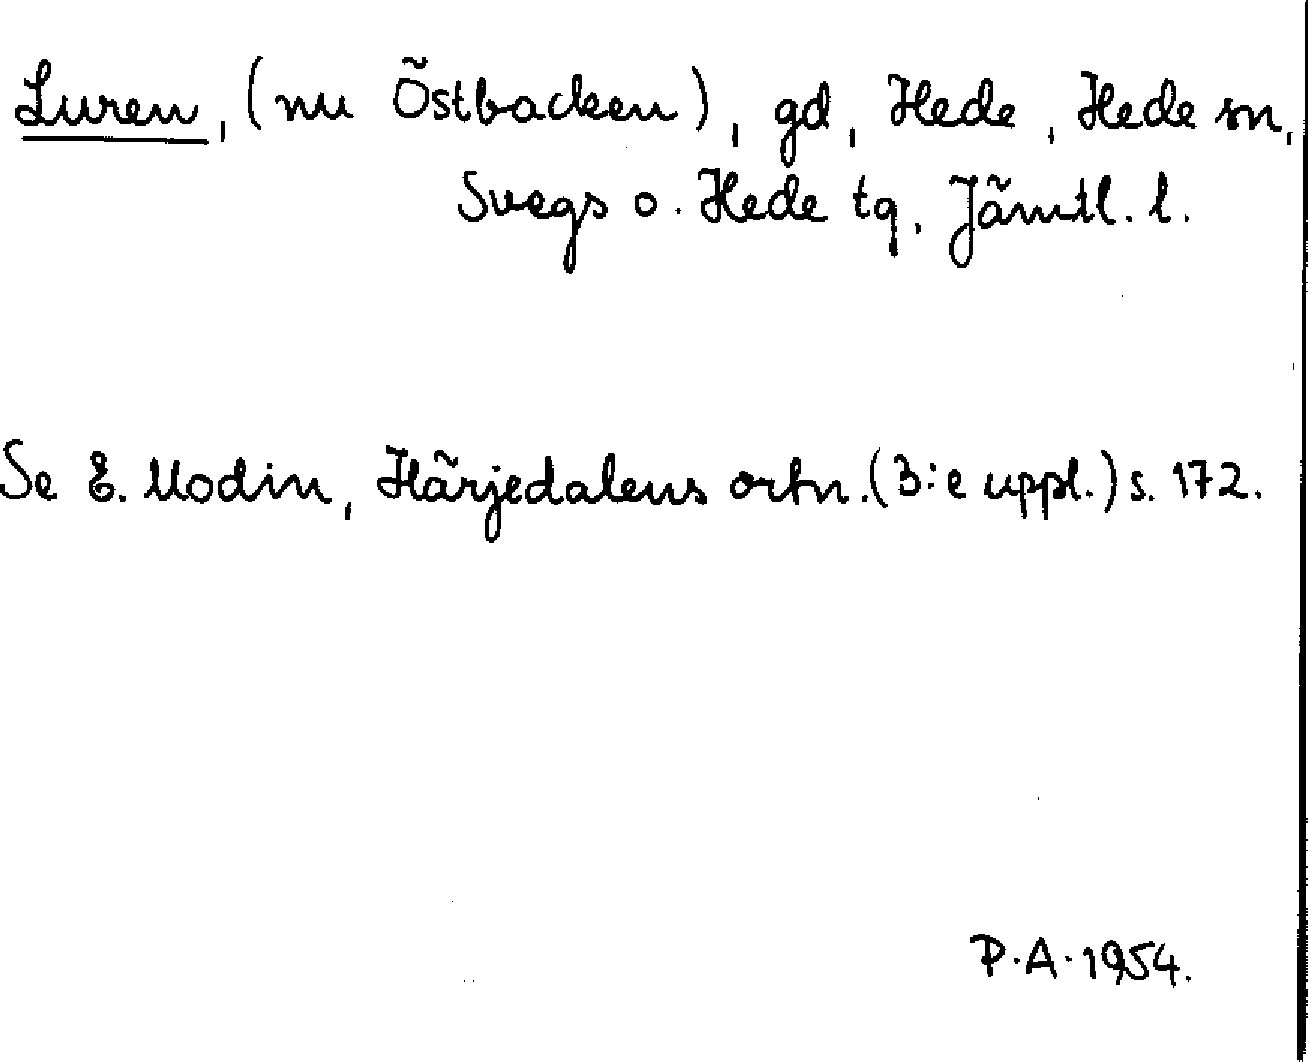 Luren, (nu Östbacken), gd, Hede, Hede sn,
Svegs o. Hede tg, Jämtl. l.
Se E. Modin, Härjedalens ortn. (3:e uppl.) s. 172.
P.A. 1954.